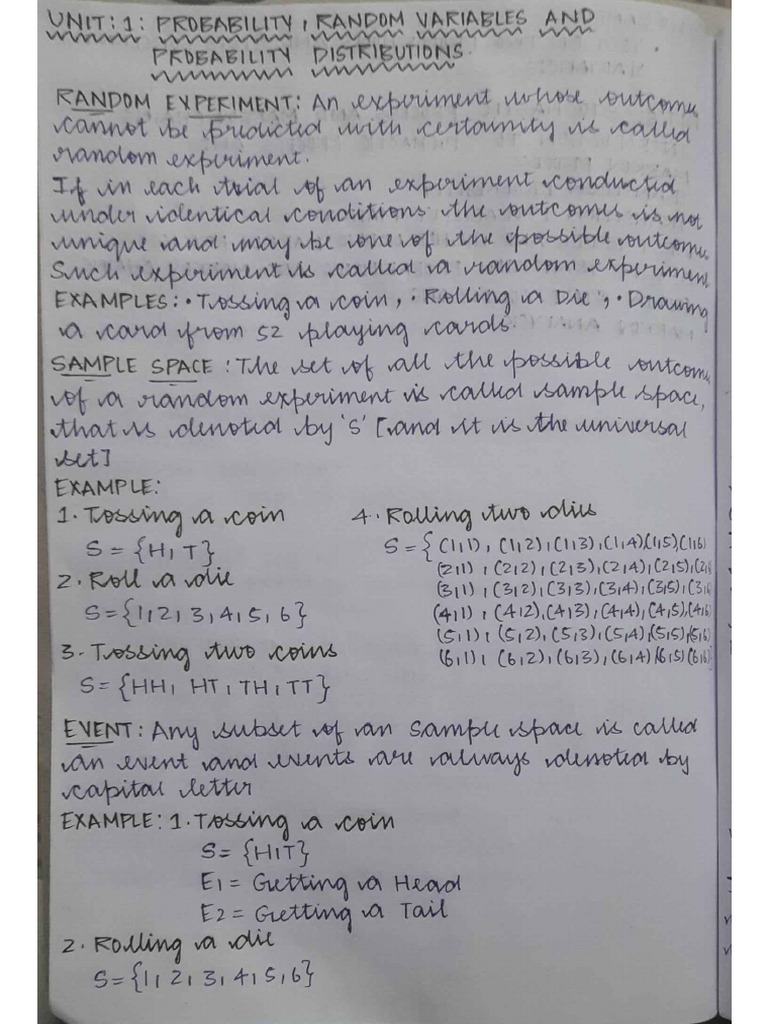 UNIT: 1: PROBABILITY, RANDOM VARIABLES AND
PROBABILITY DISTRIBUTIONS.
RANDOM EXPERIMENT: An experiment whose outcome
cannot be predicted with certainity is called
random experiment.
If in each trial of an experiment conducted
under identical conditions the outcomes is not
unique and may be one of the possible outcome
Such experiment is called a random experiment
EXAMPLES: • Tossing a coin, • Rolling a Die, • Drawing
a card from 52 playing cards.
SAMPLE SPACE: The set of all the possible outcome
of a random experiment is called sample space,
that is denoted by 'S' [and it is the universal
set]
EXAMPLE:
1. Tossing a coin
S = {H, T}
2. Roll a die
S = {1, 2, 3, 4, 5, 6}
3. Tossing two coins
S = {HH, HT, TH, TT}
4. Rolling two dies
S = { (1,1), (1,2), (1,3), (1,4) (1,5) (1,6)
(2,1), (2,2), (2,3), (2,4), (2,5), (2,6
(3,1), (3,2), (3,3), (3,4), (3,5), (3,6
(4,1), (4,2), (4,3), (4,4), (4,5), (4,6
(5,1), (5,2), (5,3), (5,4), (5,5), (5,6)
(6,1), (6,2), (6,3), (6,4) (6,5) (6,6)
EVENT: Any subset of an sample space is called
an event and events are always denoted by
capital letter
EXAMPLE: 1. Tossing a coin
S = {H,T}
E1 = Getting a Head
E2 = Getting a Tail
2. Rolling a die
S = {1, 2, 3, 4, 5, 6}